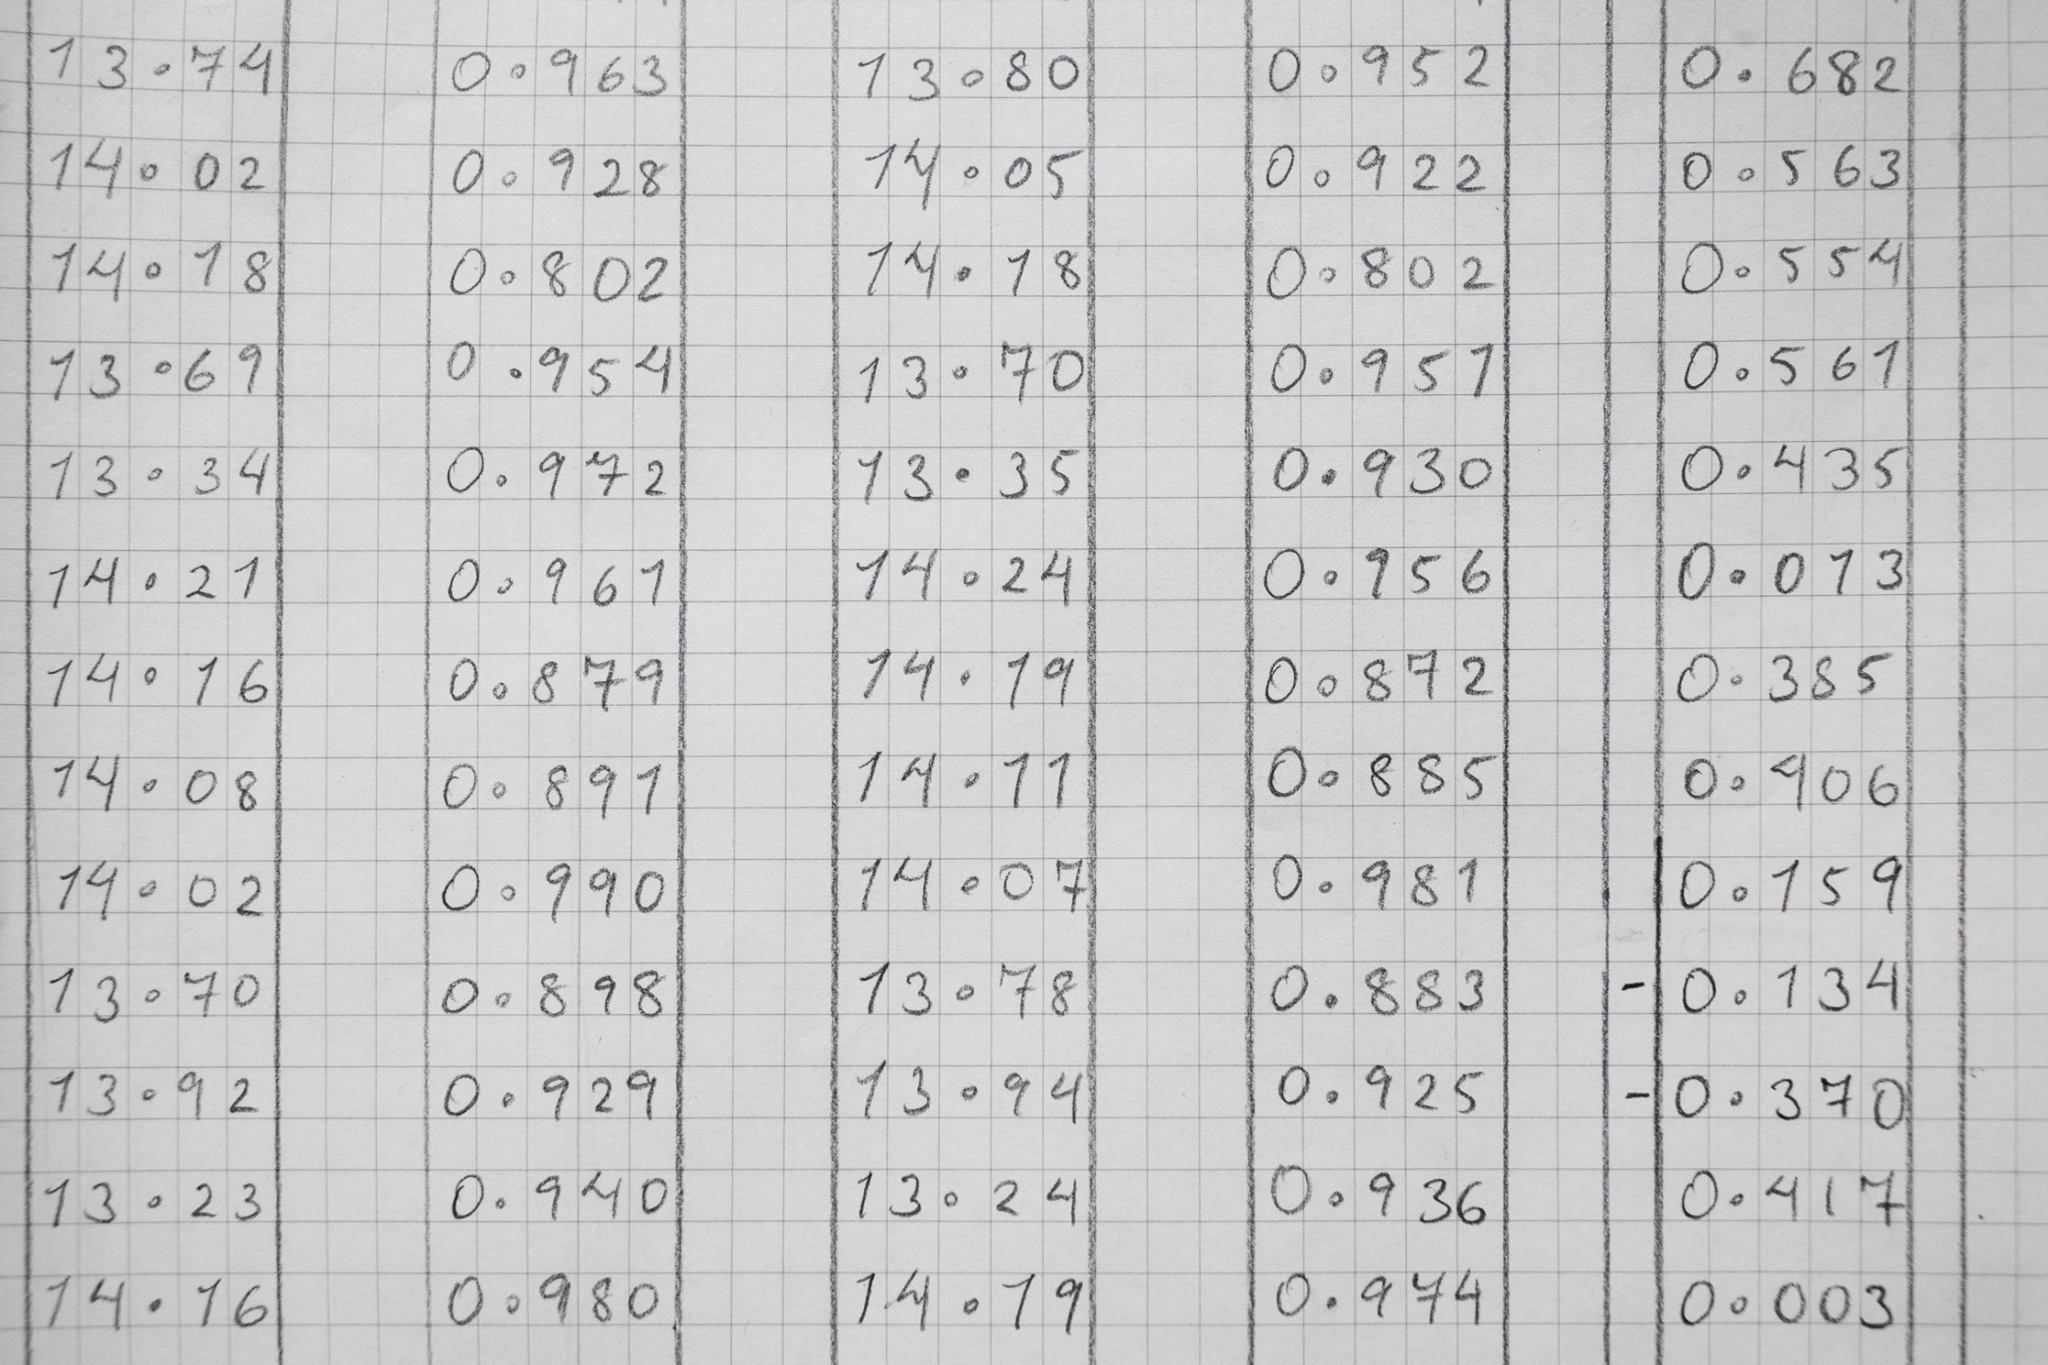 13.74 0.963 13.80 0.952 0.682
14.02 0.928 14.05 0.922 0.563
14.18 0.802 14.18 0.802 0.554
13.69 0.954 13.70 0.951 0.561
13.34 0.972 13.35 0.930 0.435
14.21 0.961 14.24 0.956 0.013
14.16 0.879 14.19 0.872 0.385
14.08 0.891 14.11 0.885 0.406
14.02 0.990 14.07 0.981 0.159
13.70 0.898 13.78 0.883 -0.134
13.92 0.929 13.94 0.925 -0.370
13.23 0.940 13.24 0.936 0.417
14.16 0.980 14.19 0.974 0.003